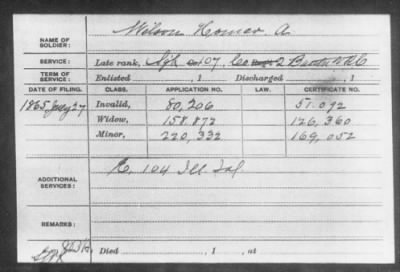 NAME OF SOLDIER: Wilson Homer A
SERVICE: Late rank, Sgt Co. 107, Co 2 Batt V.R.C.
TERM OF SERVICE: Enlisted , 1 Discharged , 1
DATE OF FILING. CLASS. APPLICATION NO. LAW. CERTIFICATE NO.
1865 July 27 Invalid, 80,206 51.092
Widow, 158.872 126,360
Minor, 220,332 169,052
ADDITIONAL SERVICES: E. 104 Ill Inf
REMARKS:
Died , 1 , at